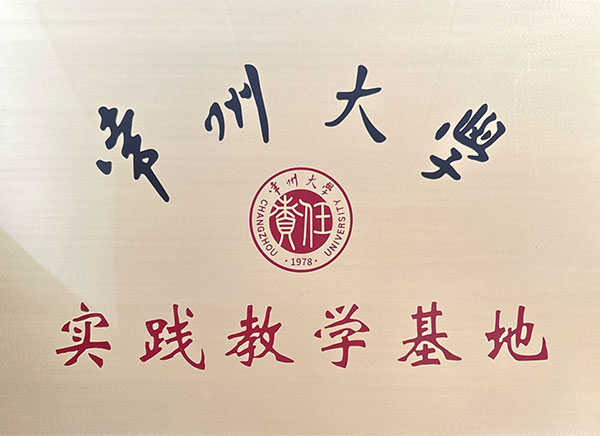 常州大學
常州大學
責任
CHANGZHOU UNIVERSITY
·1978·
实践教学基地